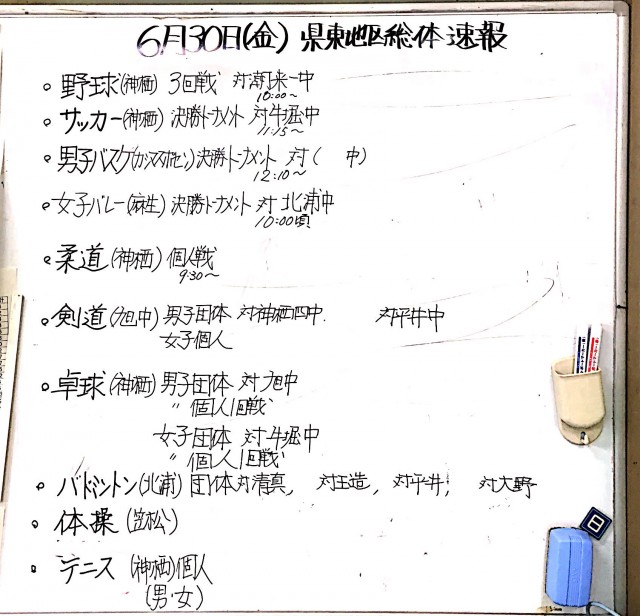 6月30日(金) 県東地区総体速報
・野球(神栖) 3回戦 対潮来一中
10:00～
・サッカー(神栖) 決勝トーナメント 対牛堀中
11:15～
・男子バスケ(カシマスポセン)決勝トーナメント 対( 中)
12:10～
・女子バレー(麻生) 決勝トーナメント 対北浦中
10:00頃
・柔道(神栖) 個人戦
9:30～
・剣道(旭中) 男子団体 対神栖四中. 対平井中
女子個人
・卓球(神栖) 男子団体 対旭中
〃 個人1回戦
女子団体 対牛堀中
〃 個人1回戦
・バドミントン(北浦) 団体対清真, 対玉造, 対平井, 対大野
・体操(笠松)
・テニス (神栖)個人
(男・女)
日